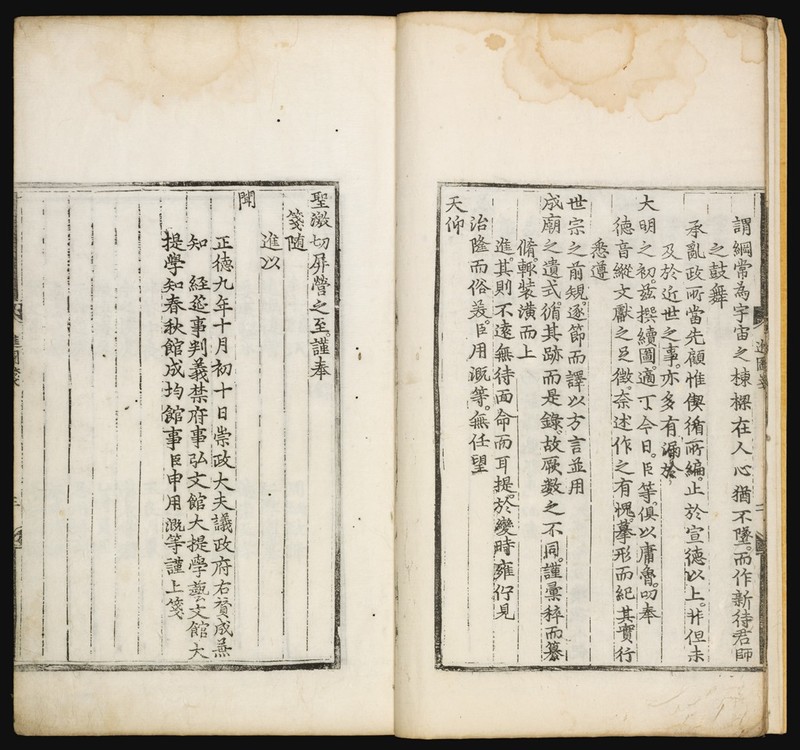 謂綱常為宇宙之棟樑在人心猶不墜而作新待君師
之鼓舞
承亂政所當先顧惟偰循所編止於宣德以上非但未
及於近世之事亦多有漏於
大明之初玆撰續圖適丁今日臣等俱以庸魯叨奉
德音縱文獻之足徵奈述作之有愧摹形而紀其實行
悉遵
世宗之前規逐節而譯以方言並用
成廟之遺式循其跡而是錄故厥數之不同謹彙稡而纂
脩輒裝潢而上
進其則不遠無待面命而耳提於變時雍佇見
治隆而俗美臣用漑等無任望
天仰
聖激切屛營之至謹奉
箋隨
進以
聞
正德九年十月初十日崇政大夫議政府右贊成兼
知 經筵事判義禁府事弘文館大提學藝文館大
提學知春秋館成均館事臣申用漑等謹上箋